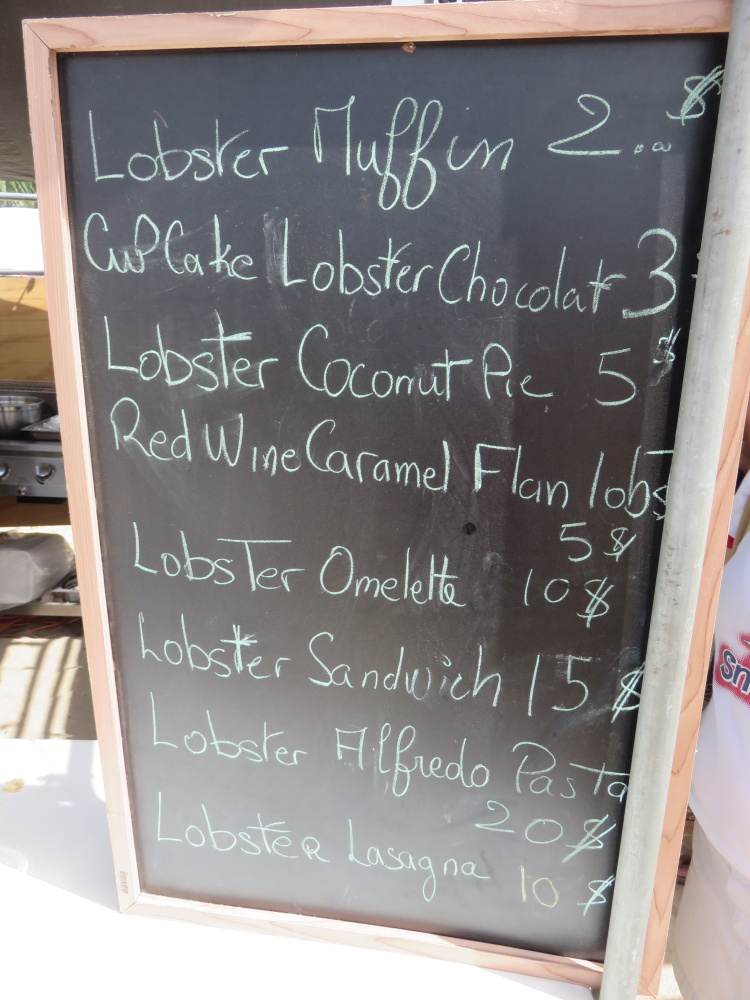 Lobster Muffin 2.00 $
CupCake Lobster Chocolat 3
Lobster Coconut Pie 5 $
Red Wine Caramel Flan lobs
5 $
Lobster Omelette 10 $
Lobster Sandwich 15 $
Lobster Alfredo Pasta
20 $
Lobster Lasagna 10 $
Sn